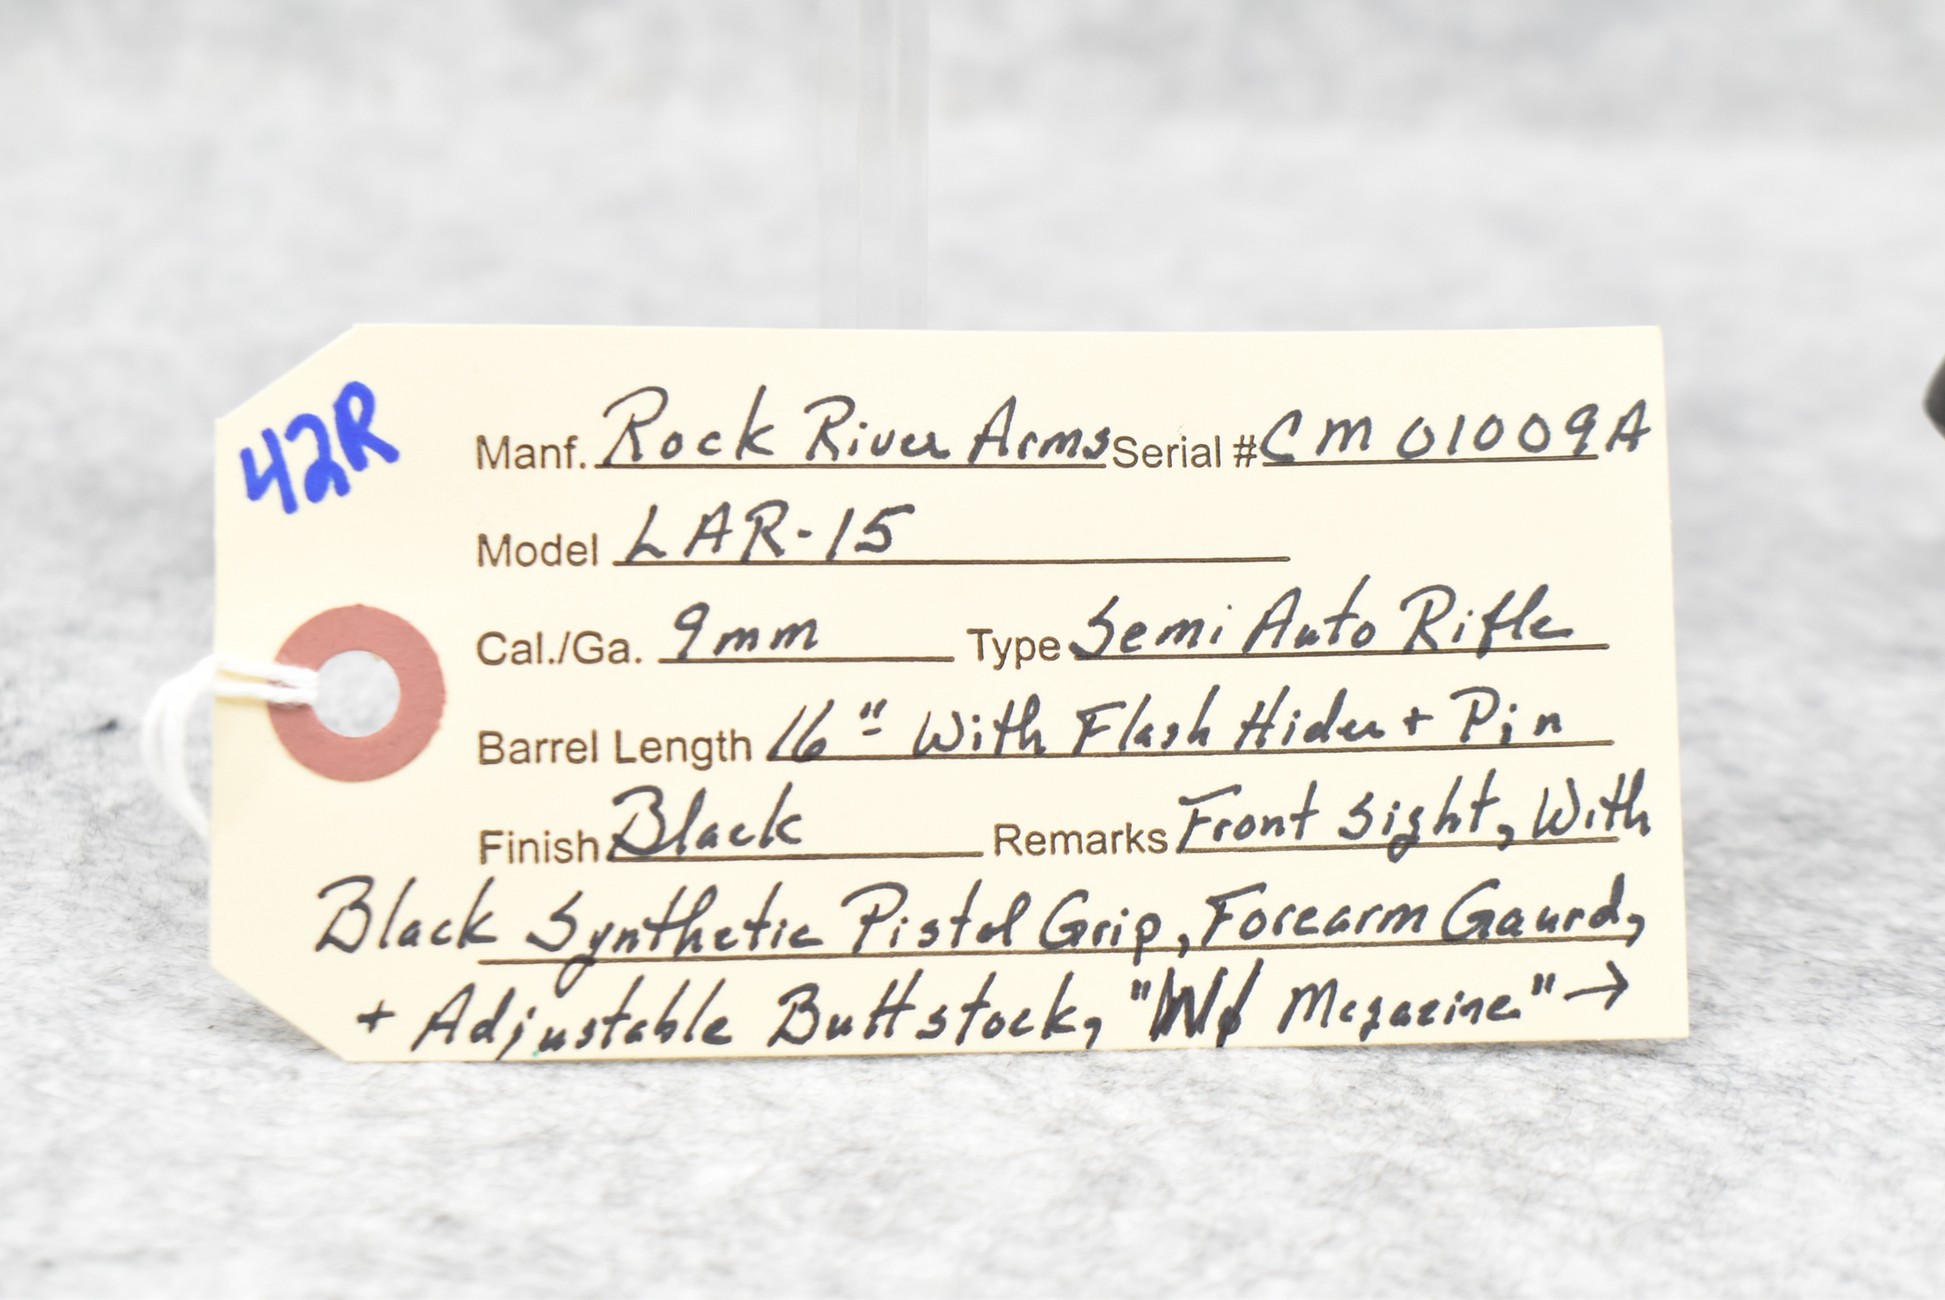 42R
Manf. Rock River Arms Serial # CM01009A
Model LAR-15
Cal./Ga. 9mm Type Semi Auto Rifle
Barrel Length 16" With Flash Hider + Pin
Finish Black Remarks Front Sight, With
Black Synthetic Pistol Grip, Forearm Gaurd,
+ Adjustable Buttstock, " Magazine" →